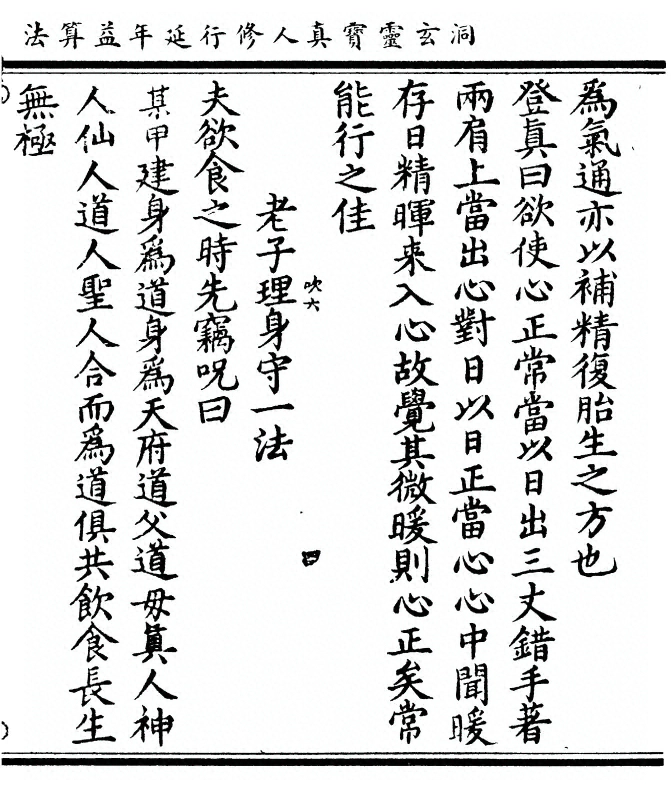 洞玄靈寶真人修行延年益算法
爲氣通亦以補精復胎生之方也
登真曰欲使心正常當以日出三丈錯手著
兩肩上當出心對日以日正當心心中聞暖
存日精暉來入心故覺其微暖則心正矣常
能行之佳
吹六
四
老子理身守一法
夫欲食之時先竊呪曰
某甲建身爲道身爲天府道父道母真人神
人仙人道人聖人合而爲道俱共飲食長生
無極